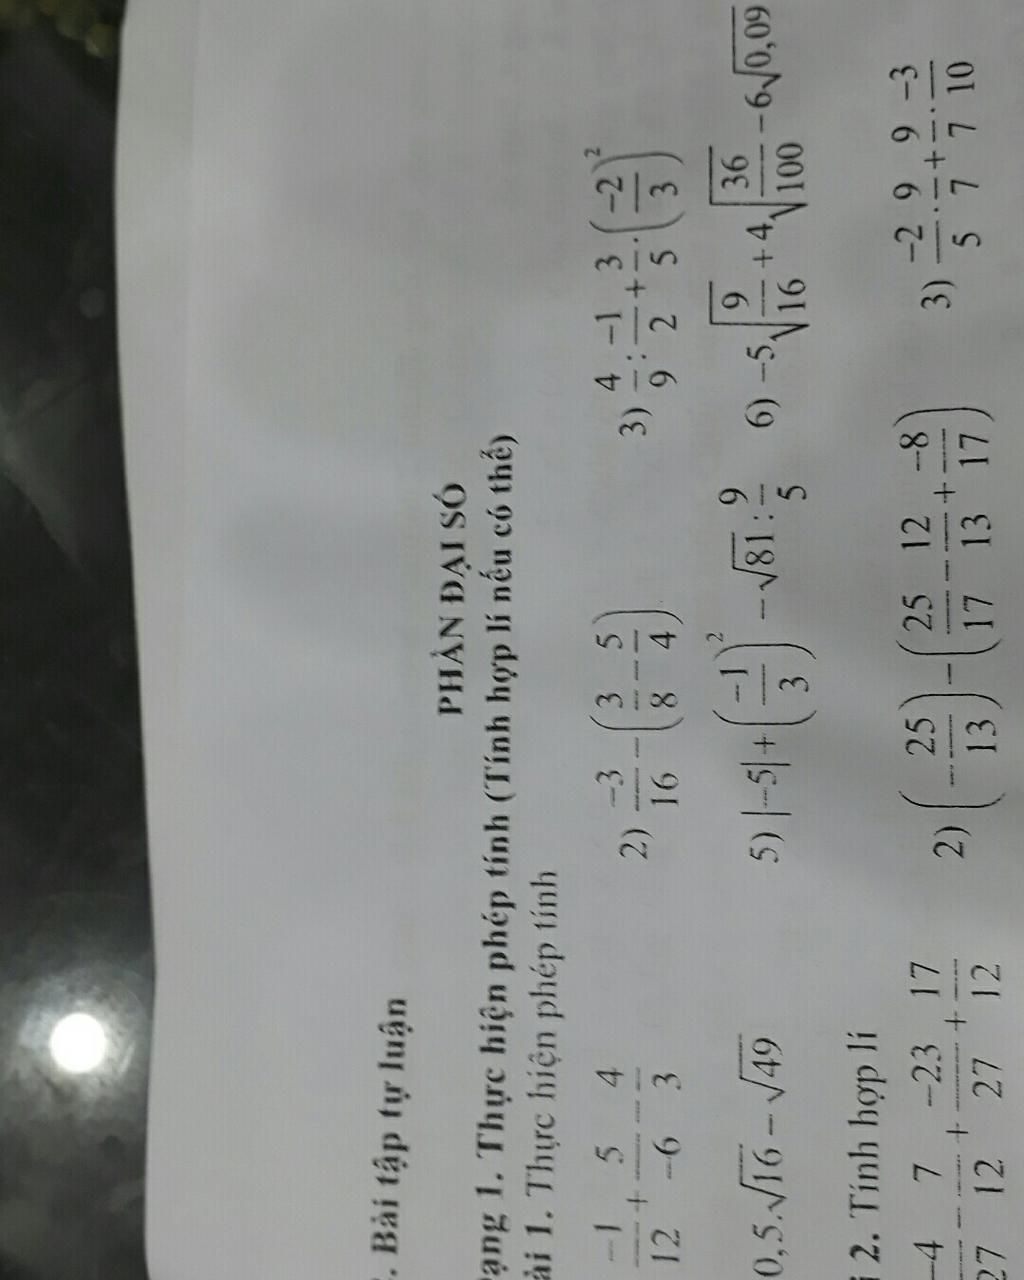 . Bài tập tự luận
PHẦN ĐẠI SỐ
ạng 1. Thực hiện phép tính (Tính hợp lí nếu có thể)
ài 1. Thực hiện phép tính
-1/12 + 5/-6 - 4/3    2) -3/16 - (3/8 - 5/4)    3) 4/9 : -1/2 + 3/5 . (-2/3)²
0,5.√16 - √49    5) |-5| + (-1/3)² - √81 : 9/5    6) -5√(9/16) + 4√(36/100) - 6√0,09
i 2. Tính hợp lí
-4/27 - 7/12 + -23/27 + 17/12    2) (-25/13) - (25/17 - 12/13 + -8/17)    3) -2/5 . 9/7 + 9/7 . -3/10